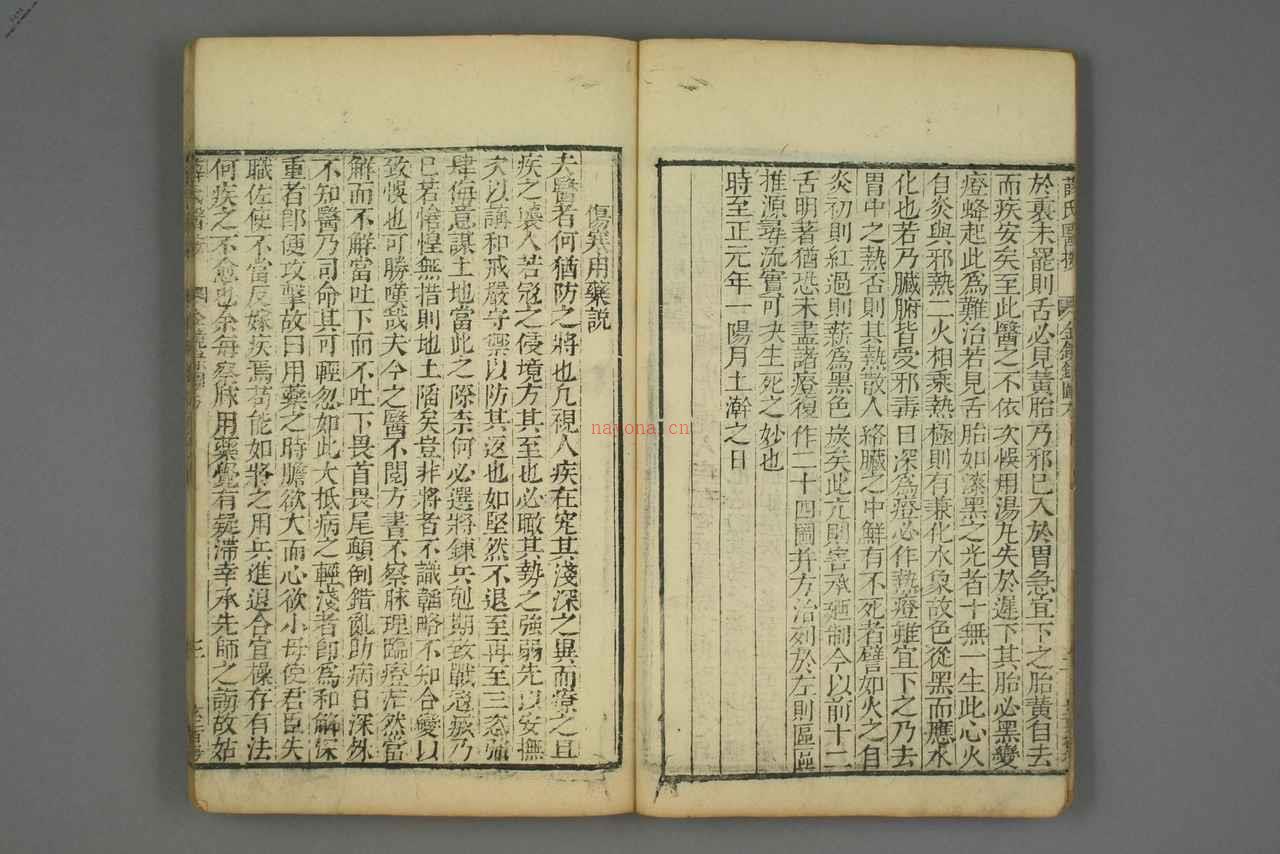 於裏未罷則舌必見黃胎乃邪已入於胃急宜下之胎黃自去
而疾安矣至此醫之不依次悞用湯丸失於遲下其胎必黑變
證蜂起此爲難治若見舌胎如漆黑之光者十無一生此心火
自炎與邪熱二火相乘熱極則有兼化水象故色從黑而應水
化也若乃臟腑皆受邪毒日深爲證必作熱證雖宜下之乃去
胃中之熱否則其熱散入絡臟之中鮮有不死者譬如火之自
炎初則紅過則薪爲黑色炭矣此亢則害承廼制今以前十二
舌明著猶恐未盡諸證復作二十四圖并方治列於左則區區
推源尋流實可決生死之妙也
時至正元年一陽月上澣之日
傷寒用藥說
夫醫者何猶防之將也凡視人疾在究其淺深之異而療之且
疾之壞人若寇之侵境方其至也必瞰其勢之強弱先以安撫
次以講和戒嚴守禦以防其返也如堅然不退至再至三恣強
肆侮意謀土地當此之際柰何必選將鍊兵剋期致戰寇疲乃
已若愴惶無措則地土陷矣豈非將者不識韜略不知合變以
致悞也可勝嘆哉夫今之醫不閱方書不察脉理臨證茫然當
解而不解當吐下而不吐下畏首畏尾顛倒錯亂助病日深殊
不知醫乃司命其可輕忽如此大抵病之輕淺者即爲和解深
重者即便攻擊故曰用藥之時膽欲大而心欲小毋使君臣失
職佐使不當反嫁疾焉苟能如將之用兵進退合宜操存有法
何疾之不愈也余每察脉用藥覺有疑滯幸承先師之誨故姑
薛氏醫按
nayona.cn